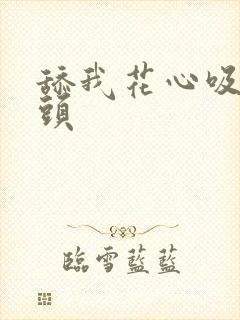 舔我花心吸
頭
臨雪藍藍